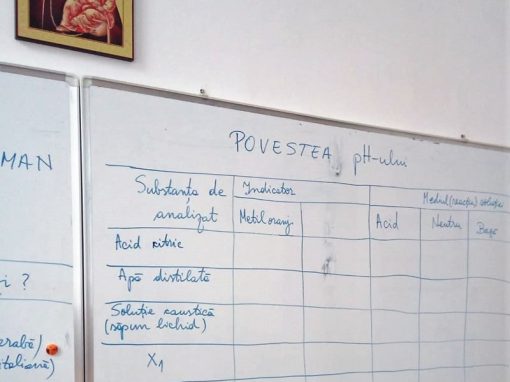 MAN
i ?
arabă)
italiană)
POVESTEA pH-ului
Substanța de
analizat
Indicator
Mediul (reacția) soluției
Metiloranj
Acid
Neutru
Bază
Acid citric
Apă distilată
Soluție caustică
(săpun lichid)
X1